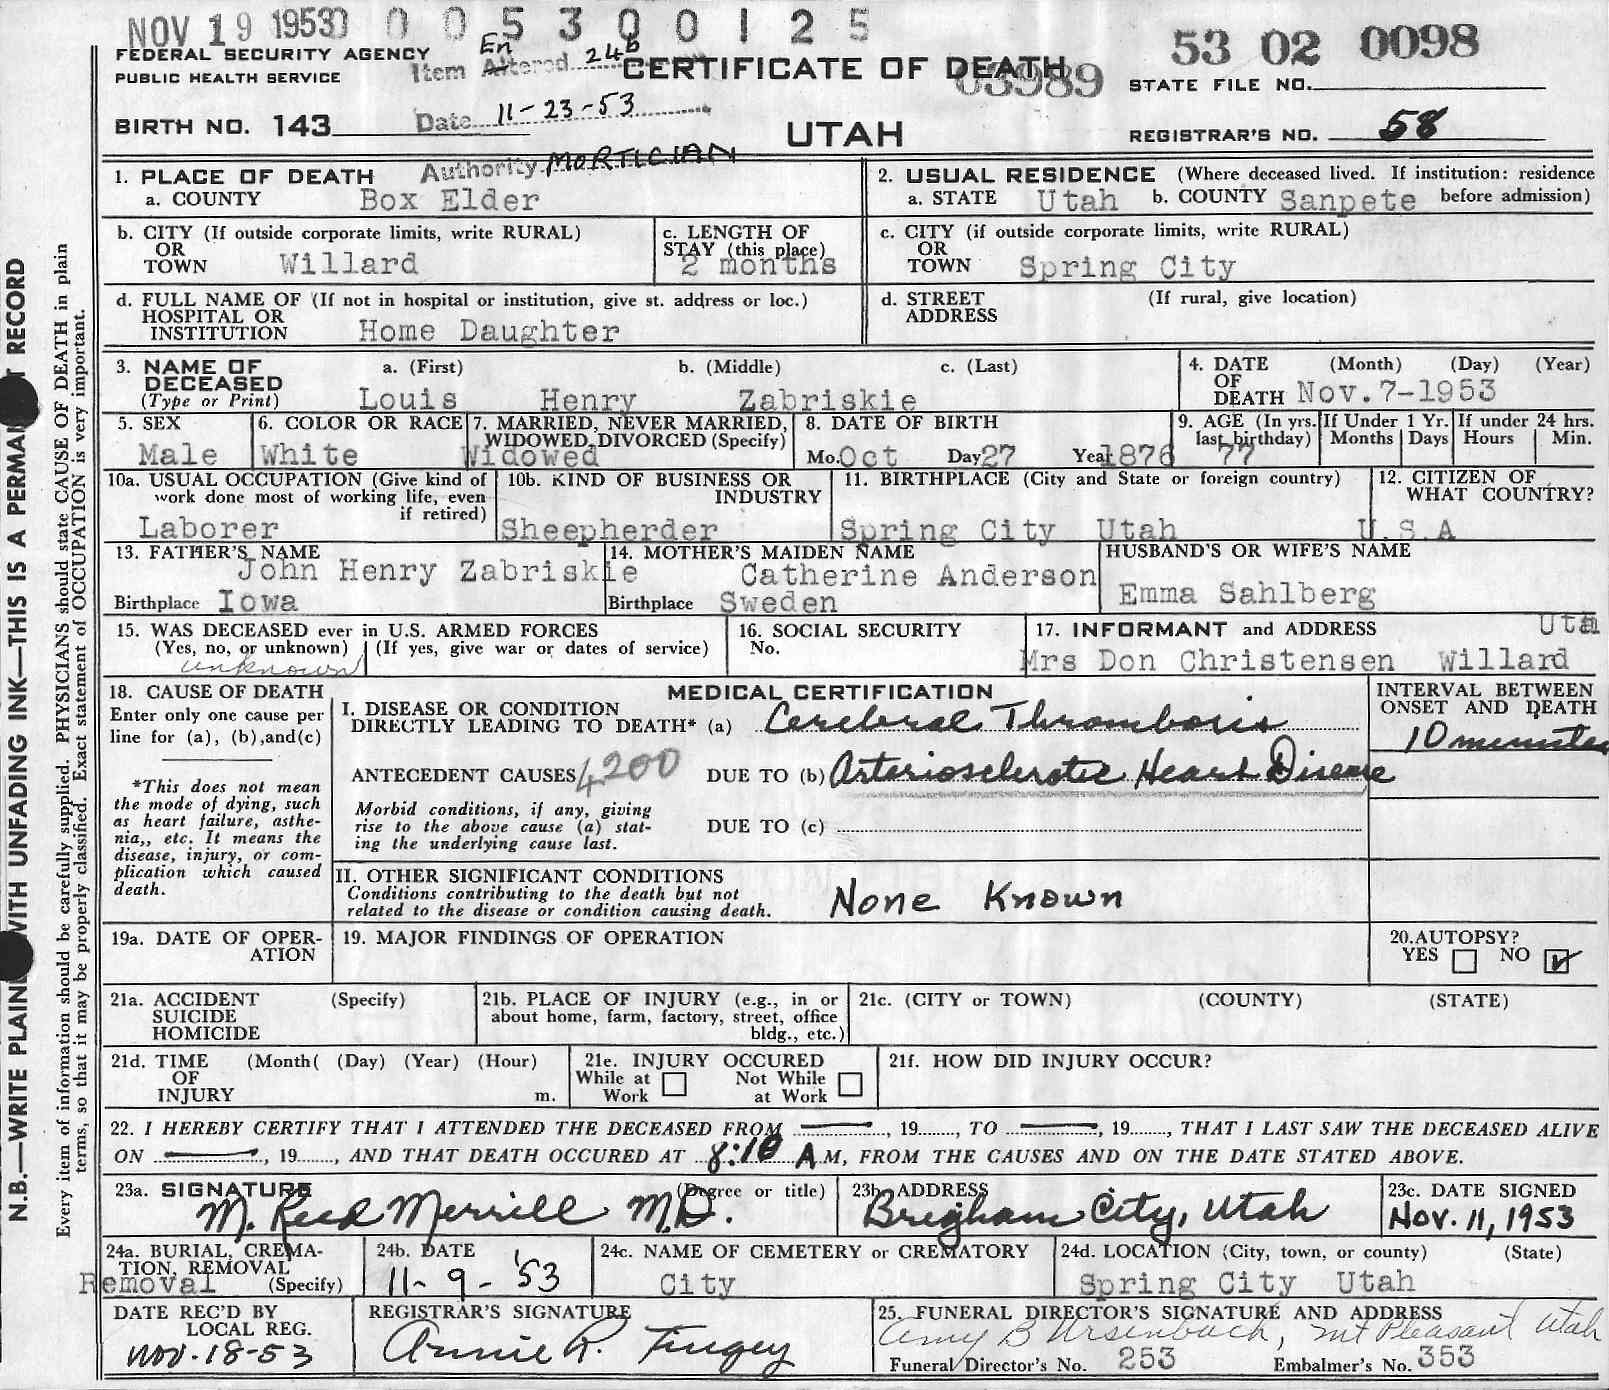 NOV 19 1953 0 0 5 3 0 0 1 2 5
53 02 0098
FEDERAL SECURITY AGENCY
PUBLIC HEALTH SERVICE
Item Altered En 24b
CERTIFICATE OF DEATH
03989
STATE FILE NO.
BIRTH NO. 143
Date 11-23-53
UTAH
REGISTRAR'S NO. 58
Authority MORTICIAN
1. PLACE OF DEATH
a. COUNTY Box Elder
2. USUAL RESIDENCE (Where deceased lived. If institution: residence before admission)
a. STATE Utah b. COUNTY Sanpete
b. CITY (If outside corporate limits, write RURAL)
OR
TOWN Willard
c. LENGTH OF
STAY (this place)
2 months
c. CITY (if outside corporate limits, write RURAL)
OR
TOWN Spring City
d. FULL NAME OF (If not in hospital or institution, give st. address or loc.)
HOSPITAL OR
INSTITUTION Home Daughter
d. STREET (If rural, give location)
ADDRESS
3. NAME OF
DECEASED
(Type or Print)
a. (First) b. (Middle) c. (Last)
Louis Henry Zabriskie
4. DATE (Month) (Day) (Year)
OF
DEATH Nov. 7-1953
5. SEX
Male
6. COLOR OR RACE
White
7. MARRIED, NEVER MARRIED,
WIDOWED, DIVORCED (Specify)
Widowed
8. DATE OF BIRTH
Mo. Oct Day 27 Year 1876
9. AGE (In yrs.
last birthday)
77
If Under 1 Yr.
Months Days
If under 24 hrs.
Hours Min.
10a. USUAL OCCUPATION (Give kind of
work done most of working life, even
if retired)
Laborer
10b. KIND OF BUSINESS OR
INDUSTRY
Sheepherder
11. BIRTHPLACE (City and State or foreign country)
Spring City Utah
12. CITIZEN OF
WHAT COUNTRY?
U.S.A
13. FATHER'S NAME
John Henry Zabriskie
Birthplace Iowa
14. MOTHER'S MAIDEN NAME
Catherine Anderson
Birthplace Sweden
HUSBAND'S OR WIFE'S NAME
Emma Sahlberg
15. WAS DECEASED ever in U.S. ARMED FORCES
(Yes, no, or unknown) (If yes, give war or dates of service)
unknown
16. SOCIAL SECURITY
No.
17. INFORMANT and ADDRESS Uta
Mrs Don Christensen Willard
18. CAUSE OF DEATH
Enter only one cause per
line for (a), (b), and (c)
*This does not mean
the mode of dying, such
as heart failure, asthe-
nia,, etc. It means the
disease, injury, or com-
plication which caused
death.
MEDICAL CERTIFICATION
I. DISEASE OR CONDITION
DIRECTLY LEADING TO DEATH* (a) Cerebral Thrombosis
ANTECEDENT CAUSES 4200 DUE TO (b) Arteriosclerotic Heart Disease
Morbid conditions, if any, giving
rise to the above cause (a) stat-
ing the underlying cause last.
DUE TO (c)
II. OTHER SIGNIFICANT CONDITIONS
Conditions contributing to the death but not
related to the disease or condition causing death.
None Known
INTERVAL BETWEEN
ONSET AND DEATH
10 minutes
19a. DATE OF OPER-
ATION
19. MAJOR FINDINGS OF OPERATION
20. AUTOPSY?
YES NO ✓
21a. ACCIDENT (Specify)
SUICIDE
HOMICIDE
21b. PLACE OF INJURY (e.g., in or
about home, farm, factory, street, office
bldg., etc.)
21c. (CITY or TOWN) (COUNTY) (STATE)
21d. TIME (Month( (Day) (Year) (Hour)
OF
INJURY m.
21e. INJURY OCCURED
While at Work Not While at Work
21f. HOW DID INJURY OCCUR?
22. I HEREBY CERTIFY THAT I ATTENDED THE DECEASED FROM ———, 19......, TO ———, 19......, THAT I LAST SAW THE DECEASED ALIVE
ON ———, 19......, AND THAT DEATH OCCURED AT 8:10 A M, FROM THE CAUSES AND ON THE DATE STATED ABOVE.
23a. SIGNATURE (Degree or title)
M. Reed Merrill M.D.
23b. ADDRESS
Brigham City, Utah
23c. DATE SIGNED
Nov. 11, 1953
24a. BURIAL, CREMA-
TION, REMOVAL
Removal (Specify)
24b. DATE
11-9-'53
24c. NAME OF CEMETERY or CREMATORY
City
24d. LOCATION (City, town, or county) (State)
Spring City Utah
DATE REC'D BY
LOCAL REG.
Nov. 18-53
REGISTRAR'S SIGNATURE
Annie R. Tingey
25. FUNERAL DIRECTOR'S SIGNATURE AND ADDRESS
B Ursenbach, Mt Pleasant Utah
Funeral Director's No. 253 Embalmer's No. 353
N.B.—WRITE PLAIN WITH UNFADING INK—THIS IS A PERMA T RECORD
Every item of information should be carefully supplied. PHYSICIANS should state CAUSE OF DEATH in plain
terms, so that it may be properly classified. Exact statement of OCCUPATION is very important.